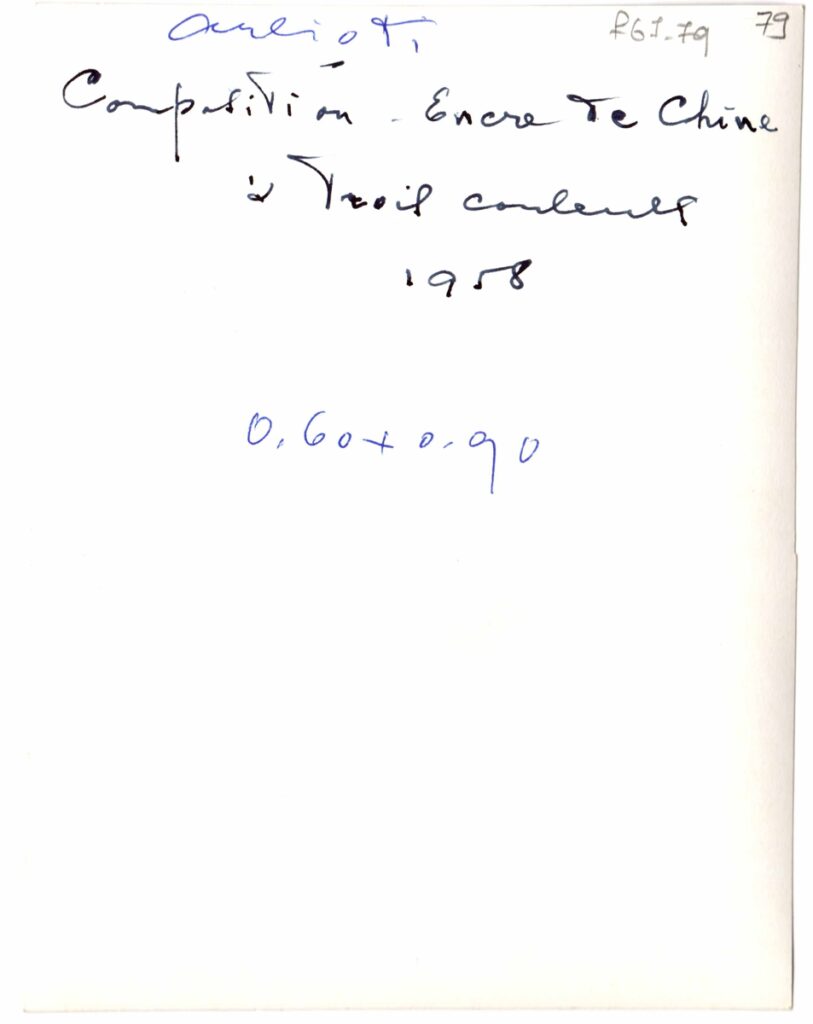 79
Composition - Encre de Chine
à trois couleurs
1958
0.60 x 0.90